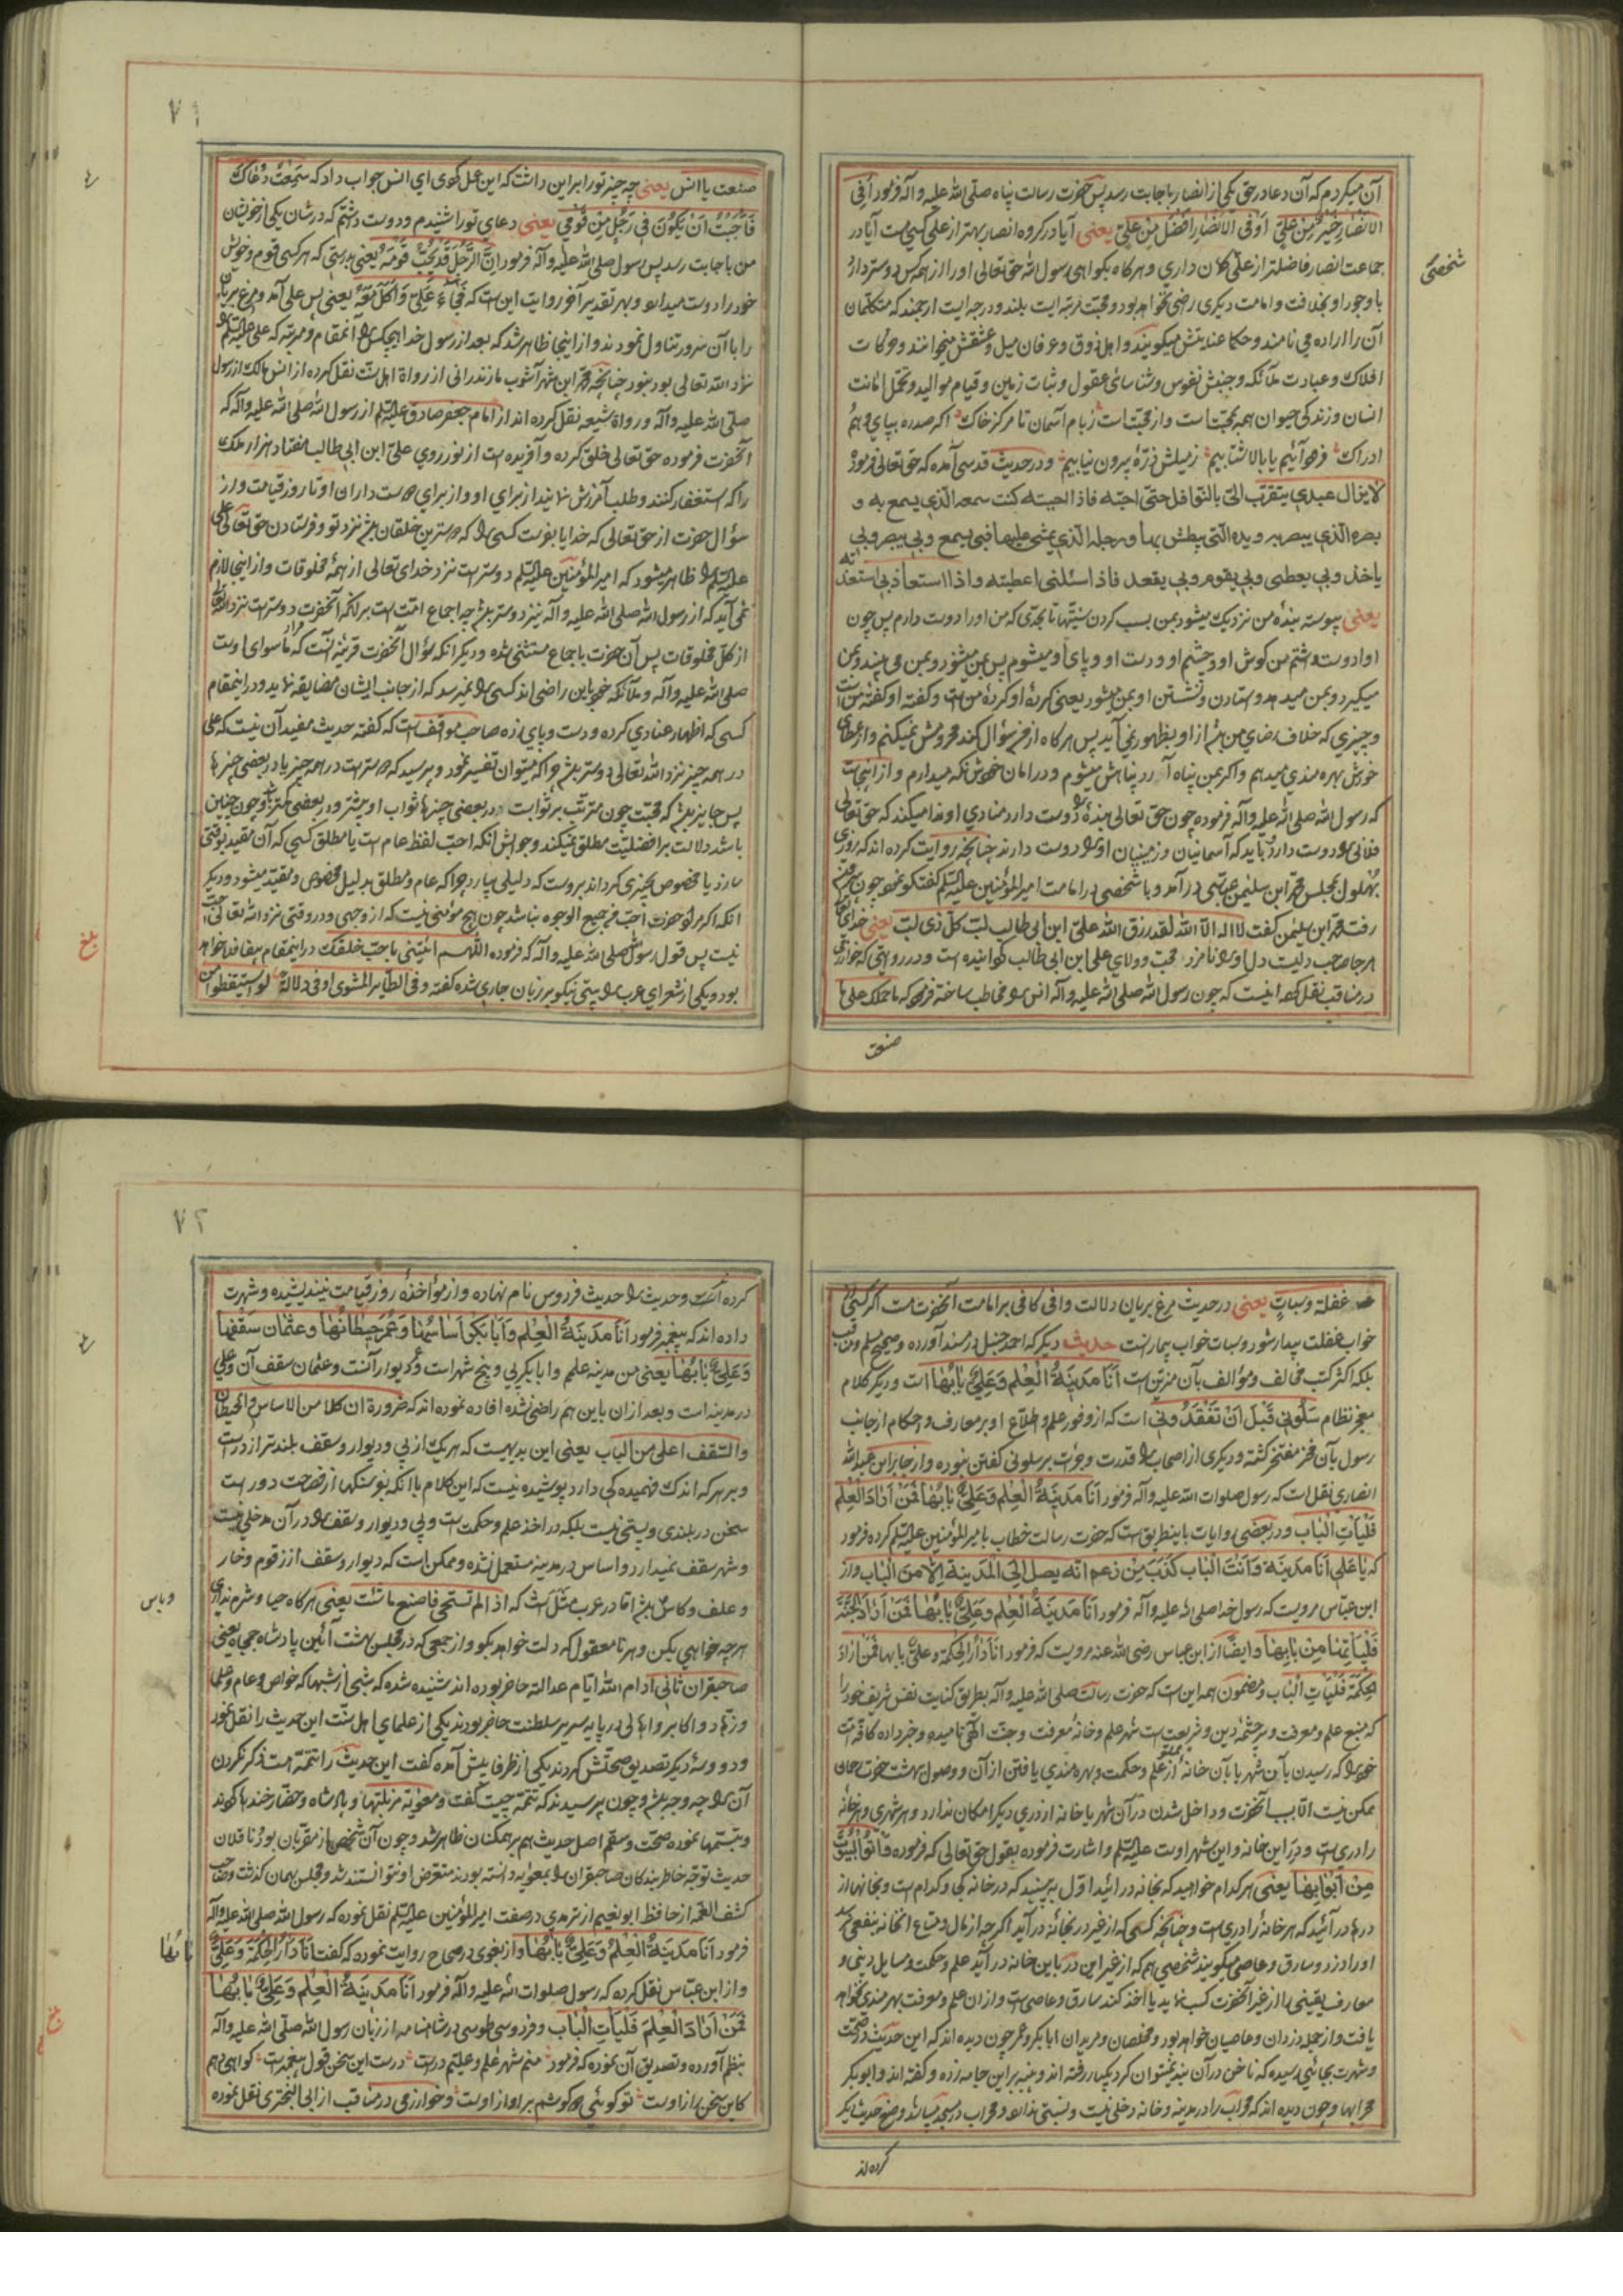 آن میکردم که آن دعا در حق یکی از انصار باجابت رسد پس حضرت رسالت پناه صلی الله علیه و آله فرمود أفی
الانصار خیر من علیّ أوفی الانصار افضل من علیّ یعنی آیا در کروه انصار بهتر از علی کسی هست آیا در
جماعت انصار فاضلتر از علی کمان داری و هرکاه بکواهی رسول الله حق تعالی او را از همه کس دوستر دارد
شخصی
با وجود او بخلافت و امامت دیکری راضی نخواهد بود و محبت مرتبه ایست بلند و درجه ایست ارجمند که متکلمان
آن را اراده می نامند و حکما عنایتش میکویند و اهل ذوق و عرفان میل و عشقش میخوانند و حرکات
افلاک و عبادت ملائکه و جنبش نفوس و شناسائی عقول و ثبات زمین و قیام موالید و تحمل امانت
انسان و زندکی حیوان همه بمحبت است و از محبت است زبام آسمان تا مرکز خاک اکر صد ره بپای وهم
ادراک فرو آئیم یا بالا شتابیم ز میلش ذرّهٔ بیرون نیابیم و در حدیث قدسی آمده که حق تعالی فرمود
لا یزال عبدی یتقرب الیّ بالنوافل حتی احبّه فاذا احببته کنت سمعه الذی یسمع به و
بصره الذی یبصر به و یده التی یبطش بها و رجله الذی یمشی علیها فبی یسمع وبی یبصر وبی
یاخذ وبی یعطی وبی یقوم وبی یقعد فاذا سئلنی اعطیته واذا استعاذ بی استعذته
یعنی پیوسته بندهٔ من نزدیک میشود بمن بسبب کردن سنتها تا بحدّی که من او را دوست دارم پس چون
او را دوست داشتم من کوش او و چشم او و دست او و پای او میشوم پس بمن میشنود و بمن می بیند و بمن
میکیرد و بمن میدهد و ستادن و نشستن او بمن میشود یعنی کردهٔ او کردهٔ من است و کفتهٔ او کفتهٔ من است
و چیزی که خلاف رضای من باشد از او بظهور نمی آید پس هرکاه از من سؤال کند محرومش نمیکنم و از عطای
خودش بهره مند میدهم و اکر بمن پناه آرد پناهش میشوم و در امان خودش نکه میدارم و از اینجاست
که رسول الله صلی الله علیه و آله فرموده چون حق تعالی بندهٔ را دوست دارد منادی او ندا میکند که حق تعالی
فلانی را دوست دارد باید که آسمانیان و زمینیان او را دوست دارند چنانچه روایت کرده اند که روزی
بهلول بمجلس محمد ابن سلیمن عباسی درآمد و با شخصی در امامت امیر المؤمنین علیه السلم کفتکو نمود چون
رفت محمد ابن سلیمن کفت لا اله الا الله لقد رزق الله علیّ ابن ابی طالب لبّ کل ذی لبّ یعنی خدای
هرجا صاحب دلیست دل او را نامزد محبت و ولای علی ابن ابی طالب کردانیده است و در روایتی که خوارزمی
در مناقب نقل کرده اینست که چون رسول الله صلی الله علیه و آله انس را مخاطب ساخته فرمود که ما حملک علی ما
صنعت
۷۱
صنعت یا انس یعنی چه چیز تو را بر این داشت که این عمل کردی ای انس جواب داد که سمعت دعاک
فاحببت ان یکون فی رجل من قومی یعنی دعای تو را شنیدم و دوست داشتم که در شان یکی از خویشان
من باجابت رسد پس رسول صلی الله علیه و آله فرمود ان الرجل قد یحب قومه یعنی بدرستی که هر کسی قوم و خویش
خود را دوست میدارد و بهر تقدیر آخر روایت این است که فجاء علیّ و اکل معه یعنی پس علی آمد و مرغ بریان
را با آن سرور تناول نمودند و از اینجا ظاهر شد که بعد از رسول خدا هیچکس را آنمقام و مرتبه که علی علیه السلم را
نزد الله تعالی بود نبود چنانچه محمد ابن شهر آشوب مازندرانی از رواة اهل سنت نقل کرده از انس مالک از رسول
صلی الله علیه و آله و رواة شیعه نقل کرده اند از امام جعفر صادق علیه السلم از رسول الله صلی الله علیه و آله که
آنحضرت فرموده حق تعالی خلق کرده و آفریده است از نور روی علی ابن ابی طالب هفتاد هزار ملک
را که استغفار کنند و طلب آمرزش نمایند از برای او و از برای دوست داران او تا روز قیامت و از
سؤال حضرت از حق تعالی که خدایا بفرست کسی را که دوسترین خلقان باشد نزد تو و فرستادن حق تعالی علی
علیه السلم را ظاهر میشود که امیر المؤمنین علیه السلم دوستر است نزد خدای تعالی از همهٔ مخلوقات و از اینجا لازم
نمی آید که از رسول الله صلی الله علیه و آله نیز دوستر باشد چه اجماع امت است بر آنکه آنحضرت دوستر است نزد الله تعالی
از کل مخلوقات پس آن حضرت باجماع مستثنی شده و دیکر آنکه سؤال آنحضرت قرینه آنست که مراد ما سوای اوست
صلی الله علیه و آله و ملائکه خود باین راضی اند کسی را نمیرسد که از جانب ایشان مضایقه نماید و در اینمقام
کسی که اظهار عنادی کرده و دست و پایی زده صاحب مواقف است که کفته حدیث مفید آن نیست که علی
در همه چیز نزد الله تعالی دوستر باشد چرا که میتوان تفسیر نمود و پرسید که دوستر است در همه چیز یا در بعضی چیزها
پس جایز باشد که محبت چون مترتب بر ثوابست در بعضی چیزها ثواب او بیشتر و در بعضی کمتر باشد و چون چنین
باشد دلالت بر افضلیت مطلق نمیکند و جوابش آنکه احب لفظ عام است یا مطلق کسی که آن مقید بوقتی
سازد یا مخصوص بچیزی کرداند بروست که دلیلی بیارد چرا که عام و مطلق بدلیل مخصوص و مقید میشود و دیکر
انکه اکر مراد حضرت احب من جمیع الوجوه نباشد چون هیچ مؤمنی نیست که از وجهی و در وقتی نزد الله تعالی احب
نیست پس قول رسول الله صلی الله علیه و آله که فرموده اللهم ائتینی باحب خلقک در اینمقام بیفایده خواهد
بلغ
بود و یکی از شعرای عرب را بیتی نیکو بر زبان جاری شده کفته و فی الطایر المشوی اوفی دلالة لو استیقظوا من
غفلة و سبات یعنی در حدیث مرغ بریان دلالت وافی کافی بر امامت آنحضرت هست اکر کسی از
خواب غفلت بیدار شود و سبات خواب بیمارست حدیث دیکر که احمد حنبل در مسند آورده و صحیح مسلم و مناقب
بلکه اکثر کتب مخالف و مؤالف بآن مزین است انا مدینة العلم و علیّ بابها است و دیکر کلام
معجز نظام سلونی قبل ان تفقدونی است که از وفور علم و اطلاع او بر معارف و احکام از جانب
رسول بآن فخر مفتخر کشته و دیکری از اصحاب را قدرت و جرات بر سلونی کفتن نبوده و از جابر ابن عبدالله
انصاری نقل است که رسول صلوات الله علیه و آله فرمود انا مدینة العلم و علیّ بابها فمن اراد العلم
فلیات الباب و در بعضی روایات باینطریق است که حضرت رسالت خطاب بامیر المؤمنین علیه السلم کرده فرمود
که یا علی انا مدینة و انت الباب کذب من زعم انه یصل الی المدینة الا من الباب و از
ابن عباس مرویست که رسول خدا صلی الله علیه و آله فرمود انا مدینة العلم و علیّ بابها فمن اراد الجنّة
فلیاتها من بابها و ایضا از ابن عباس رضی الله عنه مرویست که فرمود انا دار الحکمة و علیّ بابها فمن اراد
الحکمة فلیات الباب و مضمون همه این است که حضرت رسالت صلی الله علیه و آله بطریق کنایت نفس شریف خود را
که منبع علم و معرفت و سرچشمهٔ دین و شریعت است شهر علم و خانهٔ معرفت و جنت الهی نامیده و خبر داده کافهٔ امت
خود را که رسیدن بآن شهر یا بآن خانه از علم و حکمت و بهره مندی یافتن از آن و وصول بهشت حضرت رحمان
ممکن نیست الا بسبب آنحضرت و داخل شدن در آن شهر یا خانه از دری دیکر امکان ندارد و هر شهری و هر خانهٔ
را دریست و در این خانه و این شهر اوست علیه السلم و اشارت فرموده بقول حق تعالی که فرموده فاتوا البیوت
من ابوابها یعنی هرکدام خواهید که بخانه درائید اول به بینید که در خانه کجا و کدام است و بخانها از
درها درآئید که هر خانهٔ را دری است و چنانچه کسی که از غیر در بخانه درآید اکر چه از مال و متاع انخانه بنفعی رسد
او را دزد و سارق و عاصی میکویند شخصی هم که از غیر این در باین خانه درآید علم و حکمت و مسایل دینی و
معارف یقینی را از غیر آنحضرت کسب نماید یا اخذ کند سارق و عاصی است و از ان علم و معرفت بهره مندی نخواهد
یافت و از جمله دزدان و عاصیان خواهد بود و مخلصان و مریدان ابابکر و عمر چون دیده اند که این حدیث در صحت
و شهرت بجائی رسیده که ناخن در آن بند نمیتوان کرد یکباره رفته اند و پنبه بر این جامه زده و کفته اند و ابوبکر
محرابها و چون دیده اند که محراب را در مدینه و خانه دخلی نیست و نسبتی ندارد و محراب در مسجد میباشد وضع حدیث دیکر
کرده اند
۷۲
کرده است و حدیث را حدیث فردوس نام نهاده و از مؤاخذهٔ روز قیامت نیندیشیده و شهرت
داده اند که پیغمبر فرمود انا مدینة العلم و ابابکر اساسها و عمر حیطانها و عثمان سقفها
و علیّ بابها یعنی من مدینه علمم و ابابکر پی و پنج شهر است و عمر دیوار آنست و عثمان سقف آن و علی
در مدینه است و بعد از ان باین هم راضی نشده افاده نموده اند که ضرورة ان کلا من الاساس و الحیطان
و السقف اعلی من الباب یعنی این بدیهیست که هریک از پی و دیوار و سقف بلندتر از در است
و بر هر که اندک فهمیده کی دارد پوشیده نیست که این کلام با انکه بفرسنکها از فصاحت دور است
سخن در بلندی و پستی نیست بلکه در اخذ علم و حکمت است و پی و دیوار و سقف را در آن مدخلی نیست
و شهر سقف نمیدارد و اساس در مدینه مستعمل نشده و ممکن است که دیوار و سقف از زقوم و خار
و علف و کاه کل باشد اما در عرب مثل است که اذا لم تستحی فاصنع ما شئت یعنی هرکاه حیا و شرم نداری
هرچه خواهی بکن و هر نامعقول که دلت خواهد بکو و از جمعی که در مجلس بهشت آئین پادشاه جمجاه یعنی
صاحبقران ثانی ادام الله ایام عدالته حاضر بوده اند شنیده شده که شبی از شبها که خواص و عوام و علما
و زهاد و اکابر و اهالی در پایه سریر سلطنت حاضر بودند یکی از علمای اهل سنت این حدیث را نقل نمود
و دو و سهٔ دیکر تصدیق صحتش کردند یکی از ظرفا پیش آمده کفت این حدیث را تتمّه است ذکر نکردن
آن را چه وجه باشد و چون پرسیدند که تتمه چیست کفت و معویة مزبلتها و پادشاه و حضار خندها کردند
و تبسمها نموده صحت و سقم اصل حدیث هم بر همکنان ظاهر شد و چون آن شخص از مقربان بود ناقلان
حدیث توجه خاطر بندکان صاحبقران را بمعویه دانسته بودند متعرض او نتوانستند شد و مجلس بهمان کذشت و صاحب
کشف الغمه از حافظ ابو نعیم از ترمدی در صفت امیر المؤمنین علیه السلم نقل نموده که رسول الله صلی الله علیه و آله
فرمود انا مدینة العلم و علیّ بابها و از بغوی در صحاح روایت نموده که کفت انا دار الحکمة و علیّ
بابها
و از ابن عباس نقل کرده که رسول صلوات الله علیه و آله فرمود انا مدینة العلم و علیّ بابها
فمن اراد العلم فلیات الباب و فردوسی طوسی در شاهنامه از زبان رسول الله صلی الله علیه و آله
بلغ
بنظم آورده و تصدیق آن نموده که فرمود منم شهر علم و علیّم درست درست این سخن قول پیغمبرست کواهی دهم
کاین سخن راز اوست تو کوئی دو کوشم بر آواز اوست و خوارزمی در مناقب از ابی البختری نقل نموده